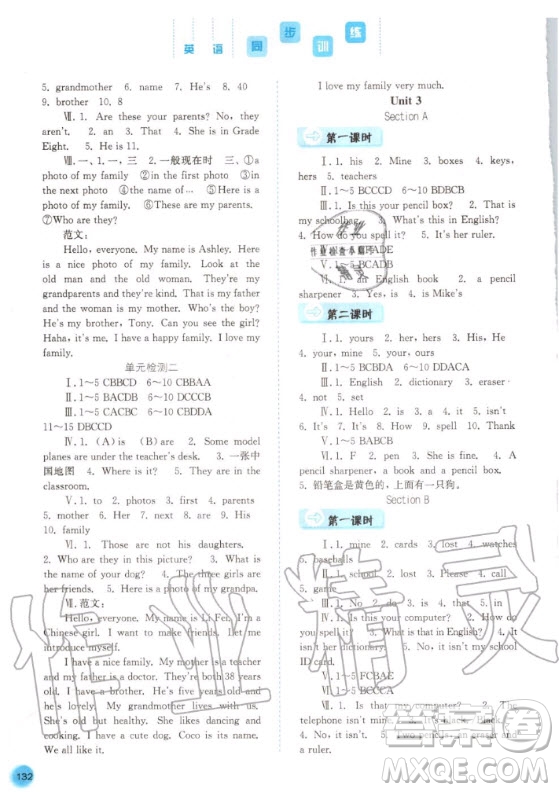 英 语 同 步 训 练
5. grandmother 6. my 7. He's 8. 40
9. brother 10. 8
Ⅶ. 1. These are your parents? No, they
aren't. 2. an 3. That's 4. She is in Grade
Eight. 5. He is 11.
Ⅷ. 一、一, 一, 三 二、一般现在时 三、①a
photo of my family ②in the first photo ③in
the next photo ④the name of... ⑤Here is a
photo of my family. ⑥These are my parents.
⑦Who are they?
范文:
Hello, everyone. My name is Ashley. Here
is a nice photo of my family. Look at the
old man and the old woman. They are my
grandparents and they are kind. The man and
the woman is my mother. Who's the boy?
He's my brother, Tony. Can you see the girl?
Haha, it's me. I have a happy family. I love my
family.
单元检测二
Ⅰ. 1～5 CBBCD 6～10 CBBAA
Ⅱ. 1～5 BACDB 6～10 DCCCC
Ⅲ. 1～5 CACBC 6～10 CBDDA
11～15 DBCCD
Ⅳ. 1. (A) is (B) are 2. Some model
planes are under the teacher's desk. 3. 一张中
国地图 4. Where is it? 5. They are in the
classroom.
Ⅴ. 1. to 2. photos 3. first 4. parents
5. mother 6. Her 7. and 8. from 9. His
10. family
Ⅵ. 1. Those are not his daughters.
2. Who are they in this picture? 3. What is
the name of your dog? 4. The three girls are
her friends. 5. Here is a photo of my grandpa.
Ⅶ. 范文:
Hello, everyone. My name is Li Fei. I'm a
Chinese girl. I come from a happy family. Let me
introduce myself.
My mother is a teacher
and my father is a teacher. They are both 38 years
old. I have a brother. He's five years old and
he is lovely. My grandmother lives with us.
She is healthy. She likes dancing and
cooking. I have a cute dog. Coco is its name.
We all like it very much.
I love my family very much.
Unit 3
Section A
第一课时
Ⅰ. 1. his 2. Mine 3. boxes 4. keys,
hers 5. teachers
Ⅱ. 1～5 BCCCD 6～10 BDBCB
Ⅲ. 1. Is this your pencil box? 2. That is
my schoolbag. 3. What's this in English?
4. How do you spell it? 5. It's her ruler.
Ⅴ. 1～5 BCADB
Ⅵ. 1. an English book 2. a pencil
sharpener 3. Yes, is 4. is Mike's
第二课时
Ⅰ. 1. yours 2. her, hers 3. His, He
4. your, mine 5. yours
Ⅱ. 1～5 BCBDA 6～10 DDACA
Ⅲ. 1. English 2. dictionary 3. eraser
4. not 5. set
Ⅳ. 1. Hello 2. is 3. a 4. it 5. isn't
6. It's 7. It's 8. How 9. spell 10. Thanks
Ⅴ. 1～5 BABCB
Ⅵ. 1. F 2. pen 3. She is fine. 4. A
pencil sharpener, a book and a pencil box.
5. 铅笔盒是黄色的，上面有一只狗。
Section B
第一课时
Ⅰ. 1. mine 2. cards 3. lost 4. watches
5. baseballs
Ⅱ. 1. found 2. lost 3. Please 4. call
5. game
Ⅲ. 1. No 2. do 3. a 4. that 5. in
Ⅳ. 1. Is this your computer? 2. How do
you spell it? 3. Is that in English? 4. It isn't my school
ID card.
Ⅴ. 1～5 FCBAE
Ⅵ. 1～5 BCCCA
Ⅶ. 1. Is that my computer? 2. The
telephone isn't mine. 3. It's black. 4. No, it isn't.
and a ruler.
132
作业精灵
答案圈
MXQE.COM